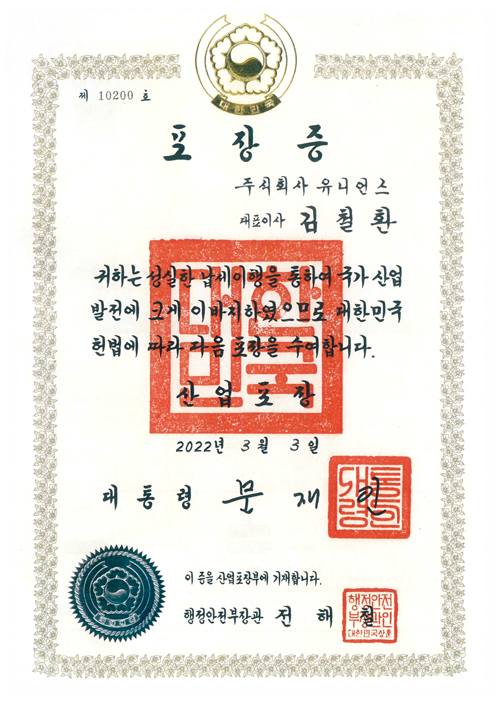 대한민국
제 10200 호
포장증
주식회사 유니언스
대표이사 김철환
귀하는 성실한 납세이행을 통하여 국가 산업
발전에 크게 이바지하였으므로 대한민국
헌법에 따라 다음 포장을 수여합니다.
산업포장
2022년 3월 3일
대통령 문재인
이 증을 산업포장부에 기재합니다.
행정안전부장관 전해철